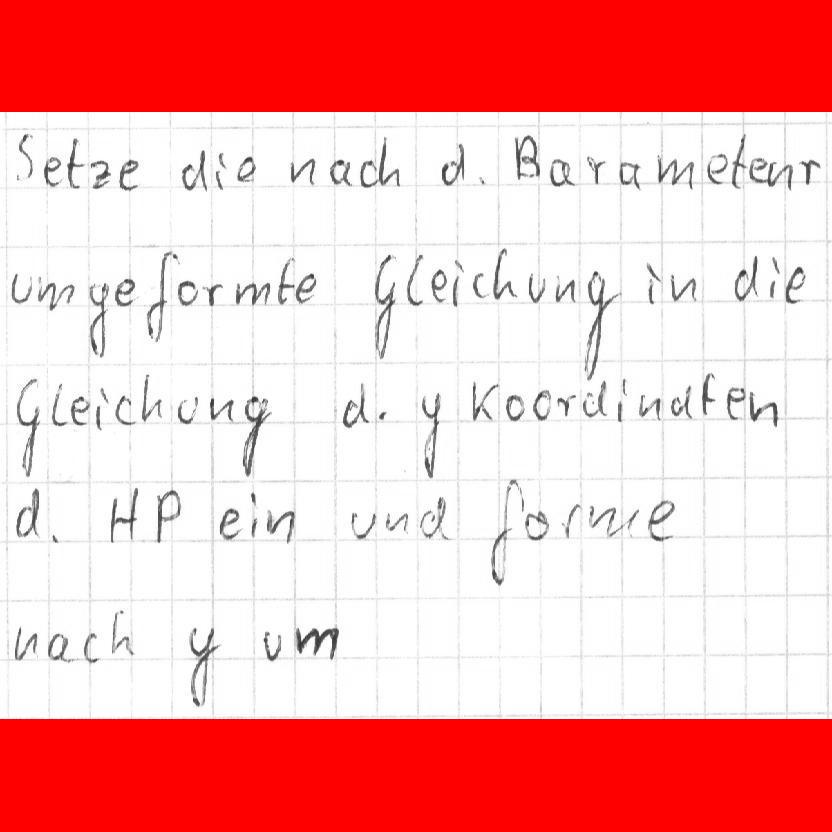 Setze die nach d. Barametenr
umgeformte Gleichung in die
Gleichung d. y Koordindten
d. HP ein und forme
nach y um